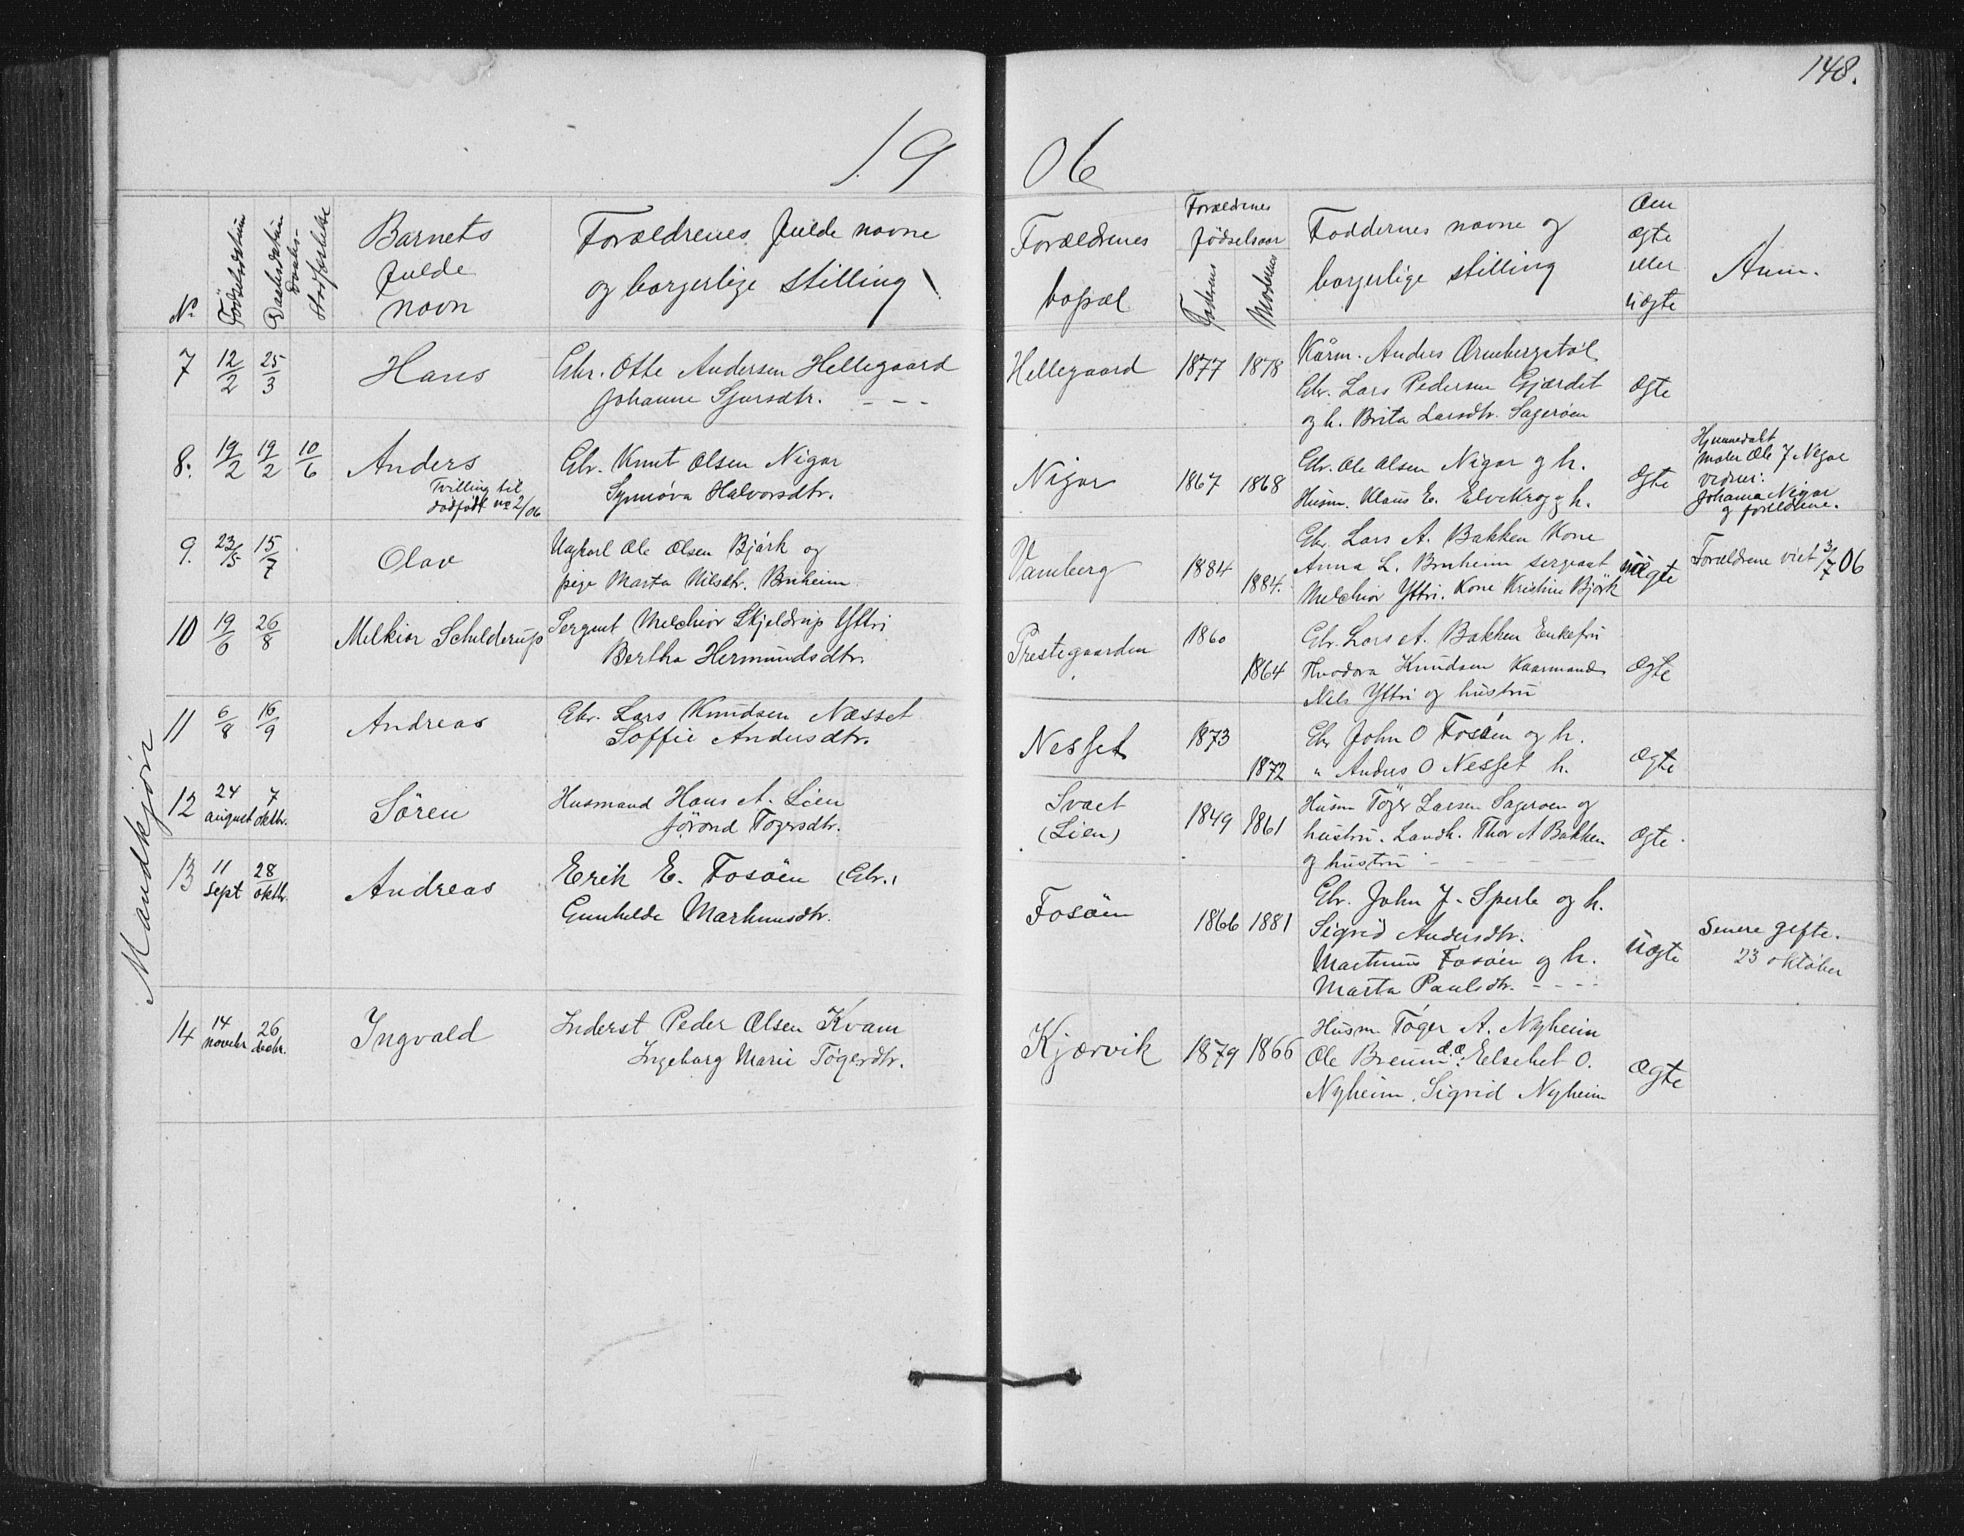 148.
19 06
Mandkjøn
№
Fødselsdatum
Daabsdatum
Daabs-
Stadfæstelse
Barnets
fulde
navn
Forældrenes fulde navne
og borgerlige stilling
Forældrenes
bopæl
Forældrenes
fødselsaar
Faderens
Moderens
Faddernes navne og
borgerlige stilling
Om
ægte
eller
uægte
Anm.
7 12/2 25/3 Hans
Gbr. Otte Andersen Hellegaard
Johanne Sjursdtr. - - -
Hellegaard 1877 1878
Kårm. Anders Ørnbergstøl
Gbr. Lars Pedersen Gjærdet
og h. Brita Larsdtr. Sagerøen
ægte
8. 19/2 19/2 10/6 Anders
Tvilling til
dødfødt no 2/06
Gbr. Knut Olsen Nigar
Synnøva Halvorsdtr.
Nigar 1867 1868
Gbr. Ole Olsen Nigar og h.
Husm. Klaus E. Elvekrog og h.
ægte
Hjemmedøbt
Ole J Nigar
vidner:
Johanna Nigar
og forældrene.
9. 23/5 15/7 Olav
Ungkarl Ole Olsen Bjørk og
pige Marta Nilsdtr. Bruheim
Vamberg 1884 1884.
Gbr. Lars A. Bakken Kone
Anna L. Bruheim sergeant
Melchior Yttri. Kone Kristine Bjørk
uægte
Forældrene viet 3/7 06
10 19/6 26/8 Melkior Schilderup
Sergent Melchior Skjeldrup Yttri
Bertha Hermundsdtr.
Prestegaarden 1860 1864
Gbr. Lars A. Bakken Enkefru
Knudsen Kaarmand
Nils Yttri og hustru
ægte
11 6/8 16/9 Andreas
Gbr. Lars Knudsen Næsset
Soffie Andersdtr.
Nesset 1873 1872
Gbr John O Fosøen og h.
" Anders O Nesset h.
ægte
12 24 august 7 oktbr. Søren
Husmand Hans A. Lien
Jørond Tøgersdtr.
Svaet
(Lien)
1849 1861
Husm Tøger Larsen Sagerøen og
hustru. Landh. Thor A Bakken
og hustru - - - -
ægte.
13 11 sept 28 oktbr. Andreas
Erik E. Fosøen (Gbr.)
Gunhilde Martinusdtr.
Fosøen 1866 1881
Gbr. John J. Sperle og h.
Sigrid Andersdtr.
Martinus Fosøen og h.
Marta Paulsdtr. - - - -
uægte
Senere gifte.
23 oktober
14 14 novebr 26 decbr. Ingvald
Inderst Peder Olsen Kvam
Ingeborg Marie Tøgersdtr.
Kjærvik 1879 1866
Husm Tøger A. Nyheim
Ole d.æ. Elsebet O.
Nyheim. Sigrid Nyheim
ægte